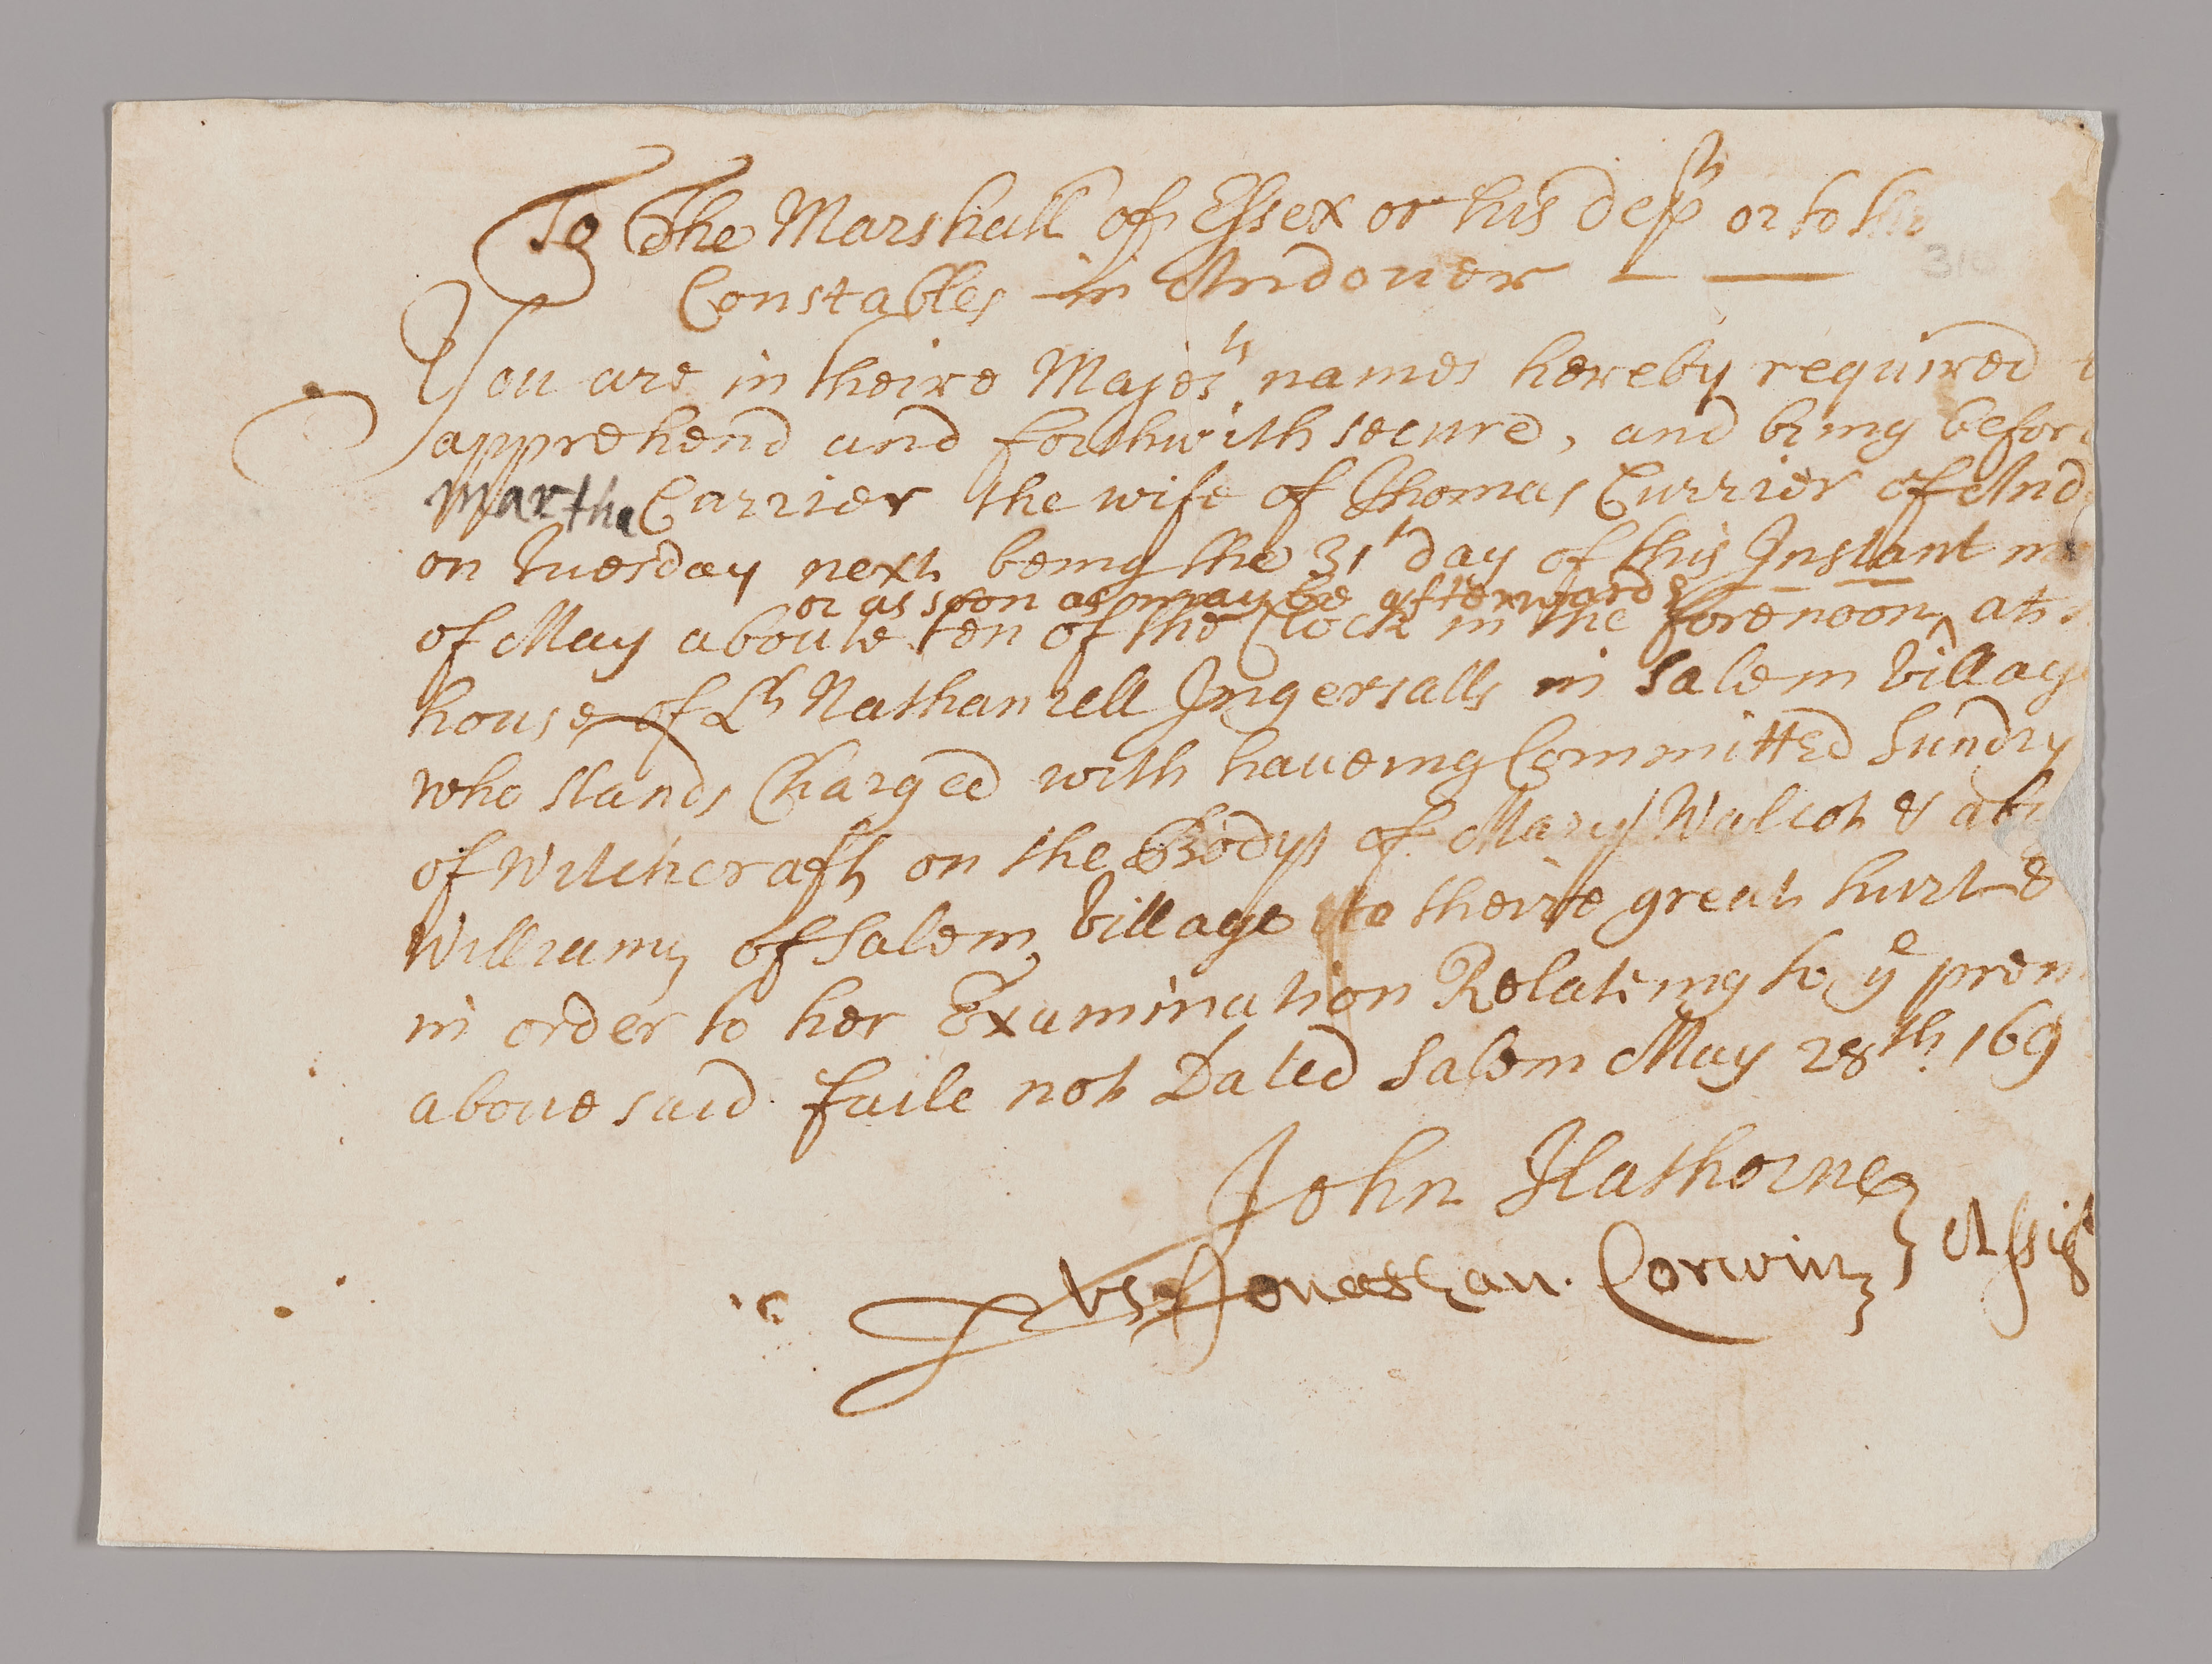 To The Marshall of Essex or his dep^t or to the
Constables in Andover
310
You are in theire Majes^ts names hereby required t
apprehend and forthwith secure, and bring before
Martha Carrier the wife of Thomas Currier of And
on Tuesday next being the 31^t day of this Instant m
or as soon as may be afterwards
of May aboute ten of the Clock in the forenoon ^ at
house of L^t Nathaniell Ingersalls in Salem Village
who stands Charged with haveing Committed Sundry
of Witchcraft on the Bodys of Mary Walcot & abi
Williams of Salem Village to theire great hurt &
in order to her Examination Relateing to y^e prem
abovesaid faile not Dated Salem May 28^th 169
John Hathorne
vs Jonathan. Corwin } Assis^t